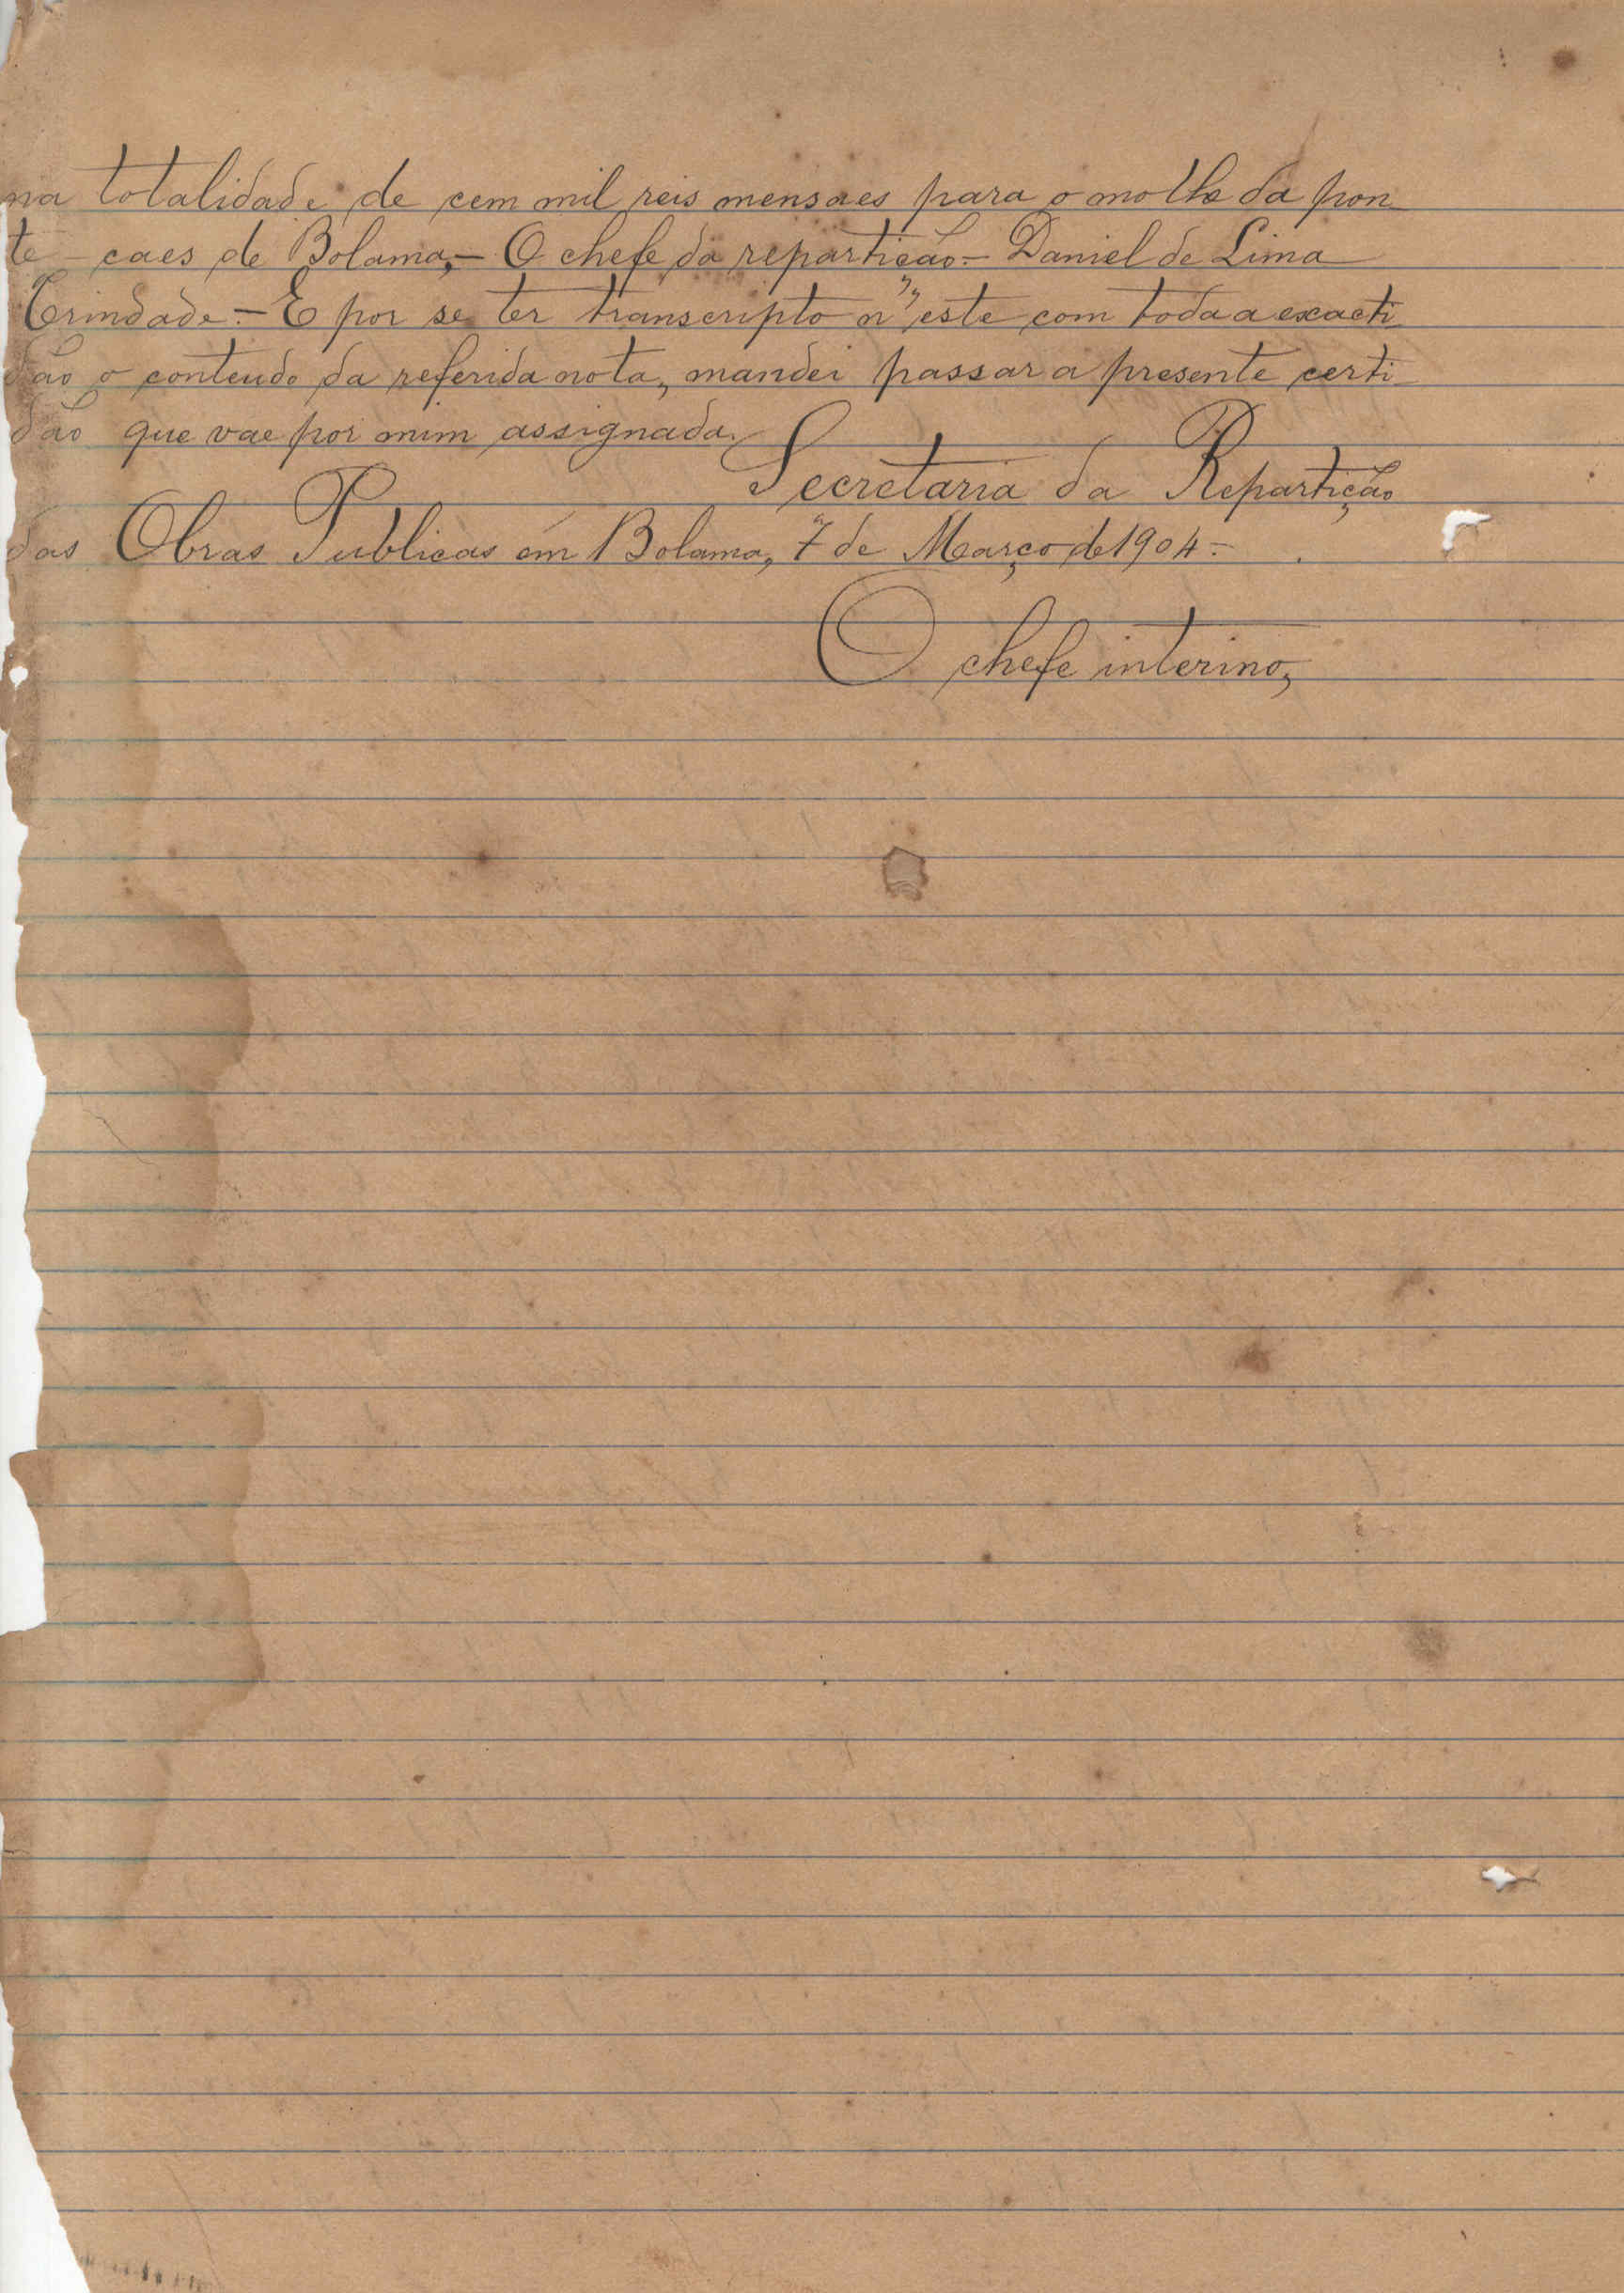 na totalidade de cem mil reis mensaes para o molhe da pon
te - caes de Bolama, - O chefe da repartição - Daniel de Lima
Trindade. - E por se ter transcripto n'este com toda a exacti
dão o conteudo da referida nota, mandei passar a presente certi
dão que vae por mim assignada.
Secretaria da Repartição
das Obras Publicas em Bolama, 7 de Março de 1904 -
O chefe interino,